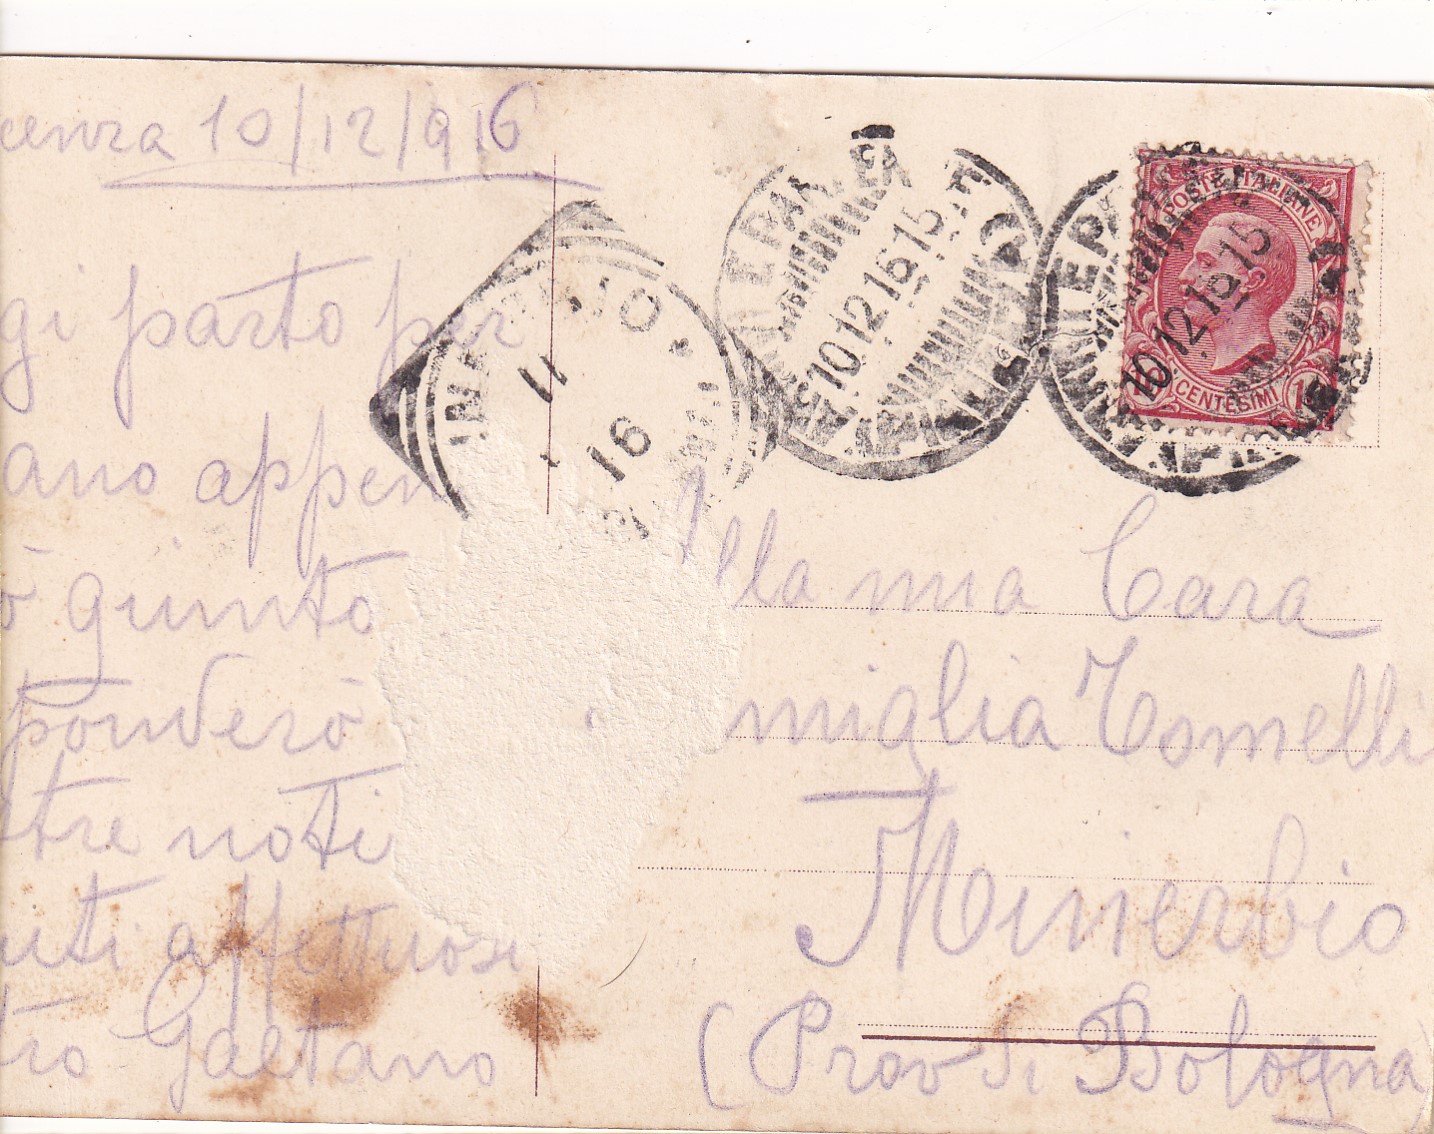 cenza 10/12/916
gi parto per
ano appen
ò giunto
ponderò
tre noti
uti affettuosi
tro Gaetano
POSTE ITALIANE
CENTESIMI
10.12.16.15
10.12.16.15
11
16
Alla mia Cara
miglia Tomelli
Minerbio
(Prov di Bologna)